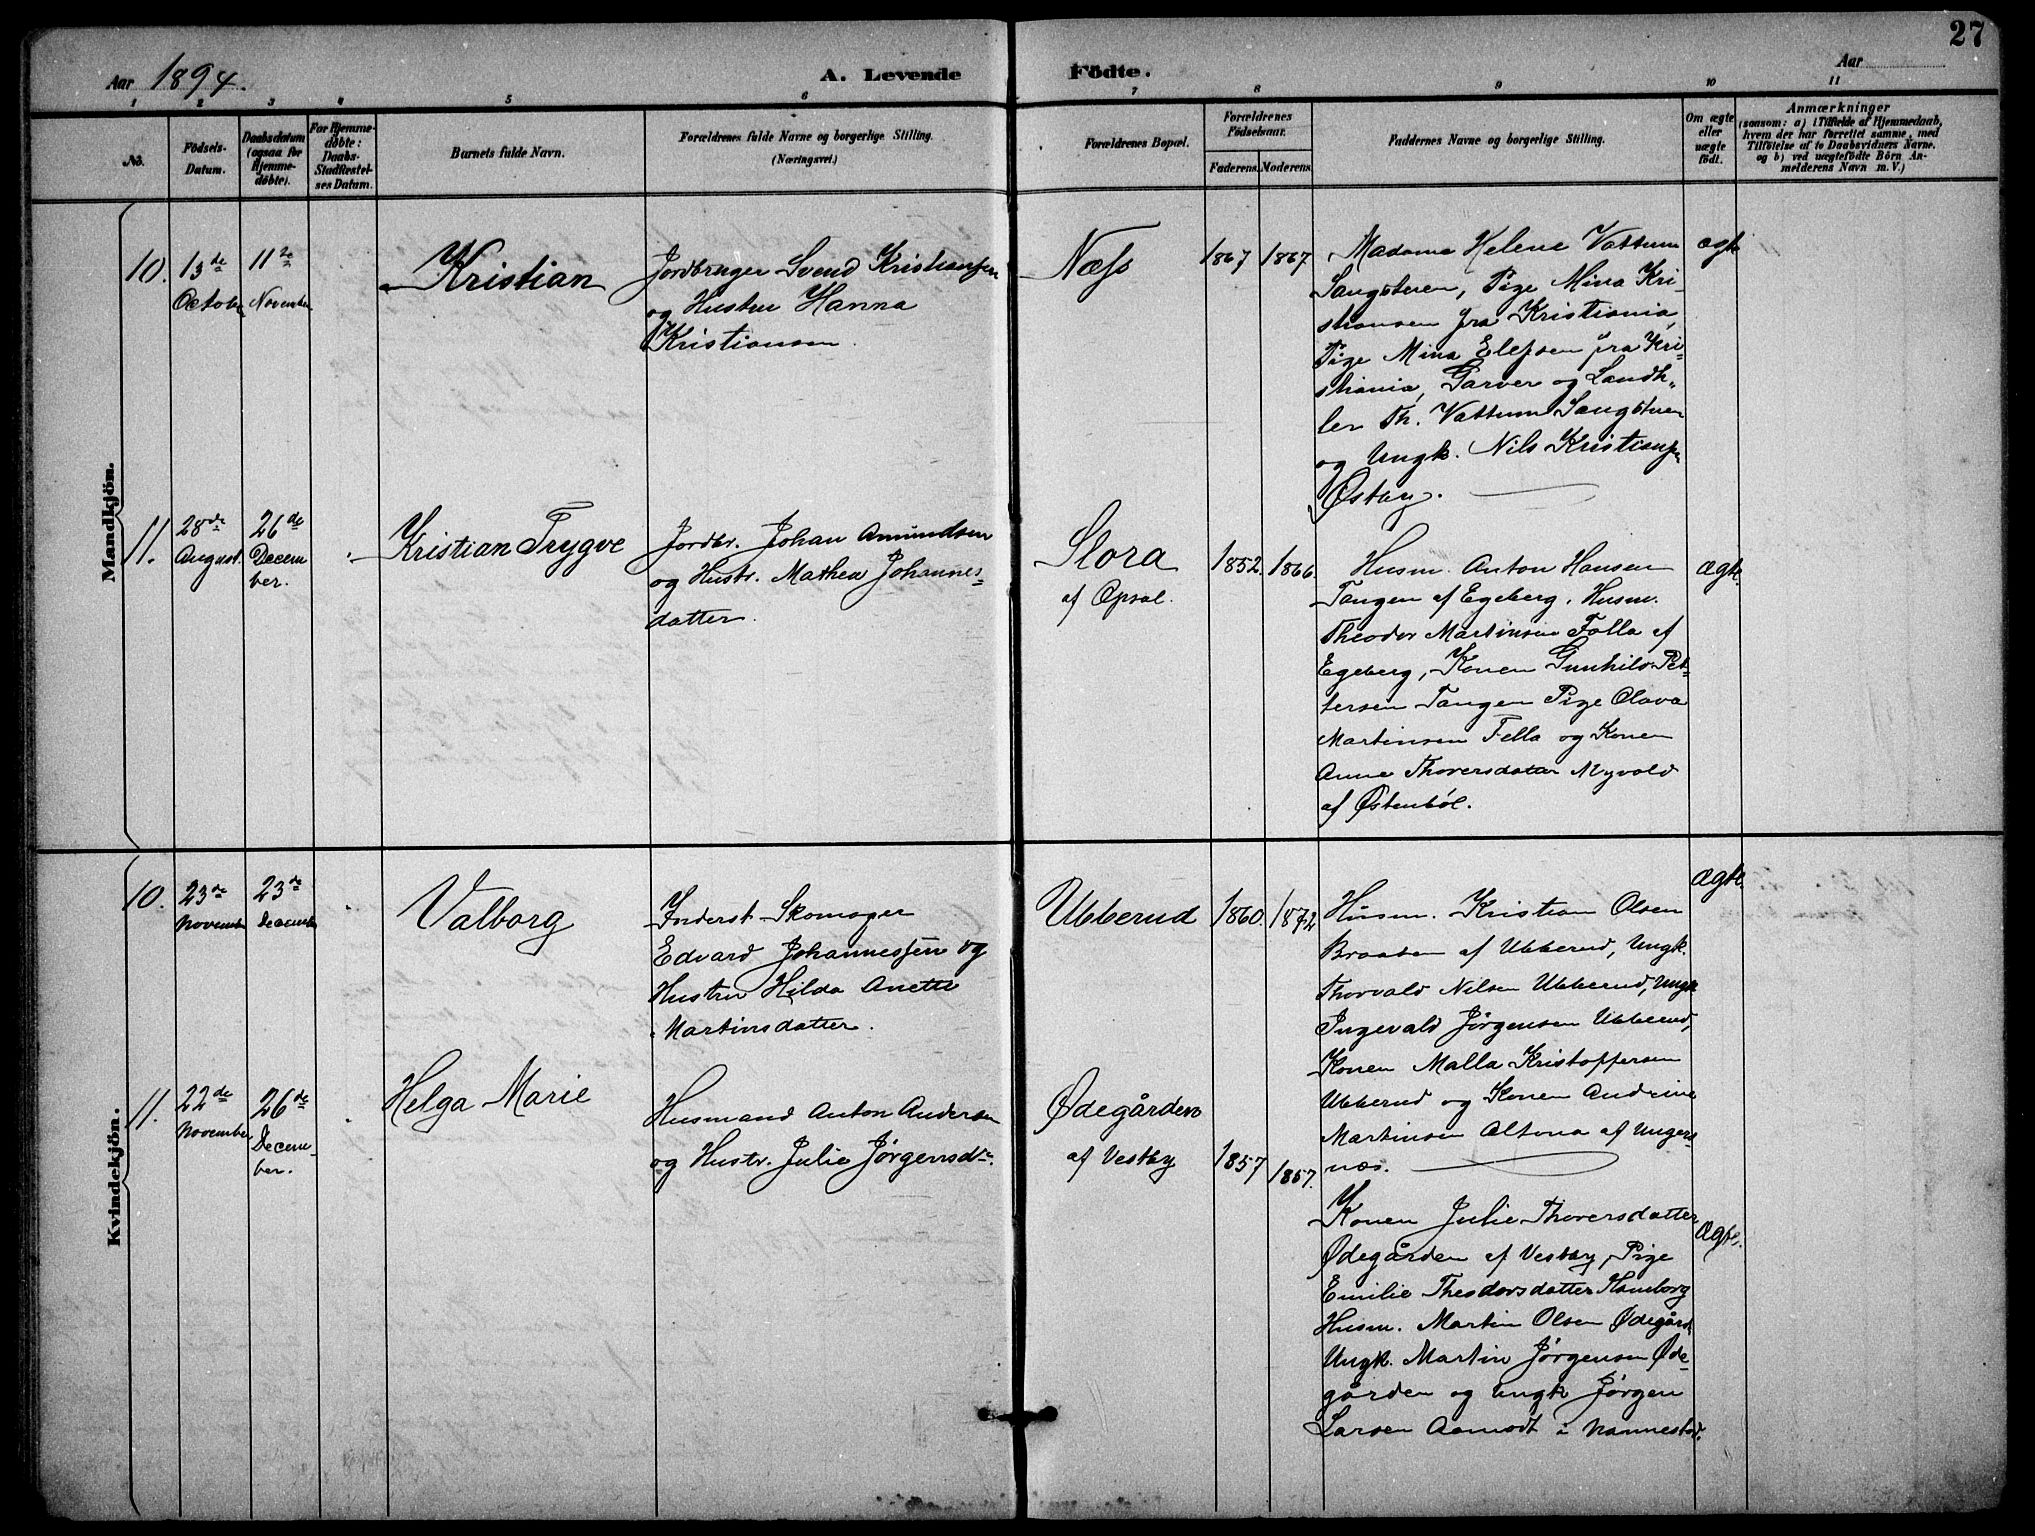 27
Aar 1894.
A. Levende Födte.
Aar
1 2 3 4 5 6 7 8 9 10 11
No.
Födsels-
Datum.
Daabsdatum
(ogsaa for
Hjemme-
döbte).
For Hjemme-
döbte:
Daabs-
Stadfæstel-
ses Datum.
Barnets fulde Navn.
Forældrenes fulde Navne og borgerlige Stilling.
(Næringsvei.)
Forældrenes Bopæl.
Forældrenes
Födselsaar.
Faderens. Moderens.
Faddernes Navne og borgerlige Stilling.
Om ægte
eller
uægte
födt.
Anmærkninger
(saasom: a) i Tilfælde af Hjemmedaab,
hvem der har forrettet samme, med
Tilföielse af to Daabsvidners Navne,
og b) ved uægtefödte Börn An-
melderens Navn m. V.)
Mandkjön.
10.
13de
October
11te
November
Kristian
Jordbruger Svend Kristiansen
og Hustru Hanna
Kristiansen.
Næss
1867 1867
Madame Helene Vattum
Sangstuen, Pige Mina Kri-
stiansen fra Kristiania,
Pige Mina Elefsen fra Kri-
stiania, Garver og Landh-
ler Th. Vattum Sangstuen
og Ungk. Nils Kristiansen
Østby.
ægte
11.
28de
August.
26de
Decem
ber.
Kristian Trygve
Jordbr. Johan Amundsen
og Hustr. Mathea Johannes-
datter.
Slora
af Opsal.
1852. 1866.
Husm. Anton Hansen
Tangen af Egeberg, Husm.
Theodor Martinsen Falla af
Egeberg, Konen Gunhild Pet-
tersen Tangen Pige Olava
Martinsen Fella og Konen
Anne Thoversdatter Nyvold
af Østenböl.
Ægte.
Kvindekjön.
10.
23de
November
23de
December
Valborg
Inderst Skomager
Edvard Johannessen og
Hustru Hilda Anette
Martinsdatter.
Ubberud
1860. 1872
Husm. Kristian Olsen
Braaten af Ubberud, Ungk.
Thorvald Nilsen Ubberud, Ungk
Ingevald Jørgensen Ubberud,
Konen Malla Kristoffersen
Ubberud og Konen Andrine
Martinsen Altona af Ungers
næs.
Ægte.
11.
22de
November
26de
Decem-
ber.
Helga Marie
Husmand Anton Andersen
og Hustr. Julie Jørgensdr.
Ødegården
af Vestby
1857 1857.
Konen Julie Thoversdatter
Ødegården af Vestby, Pige
Emilie Theodorsdatter Hamborg
Husm. Martin Olsen Ødegård
Ungk. Martin Jørgensen Øde-
gården og Ungk Jørgen
Larsen Aamodt i Nannestad.
Ægte.